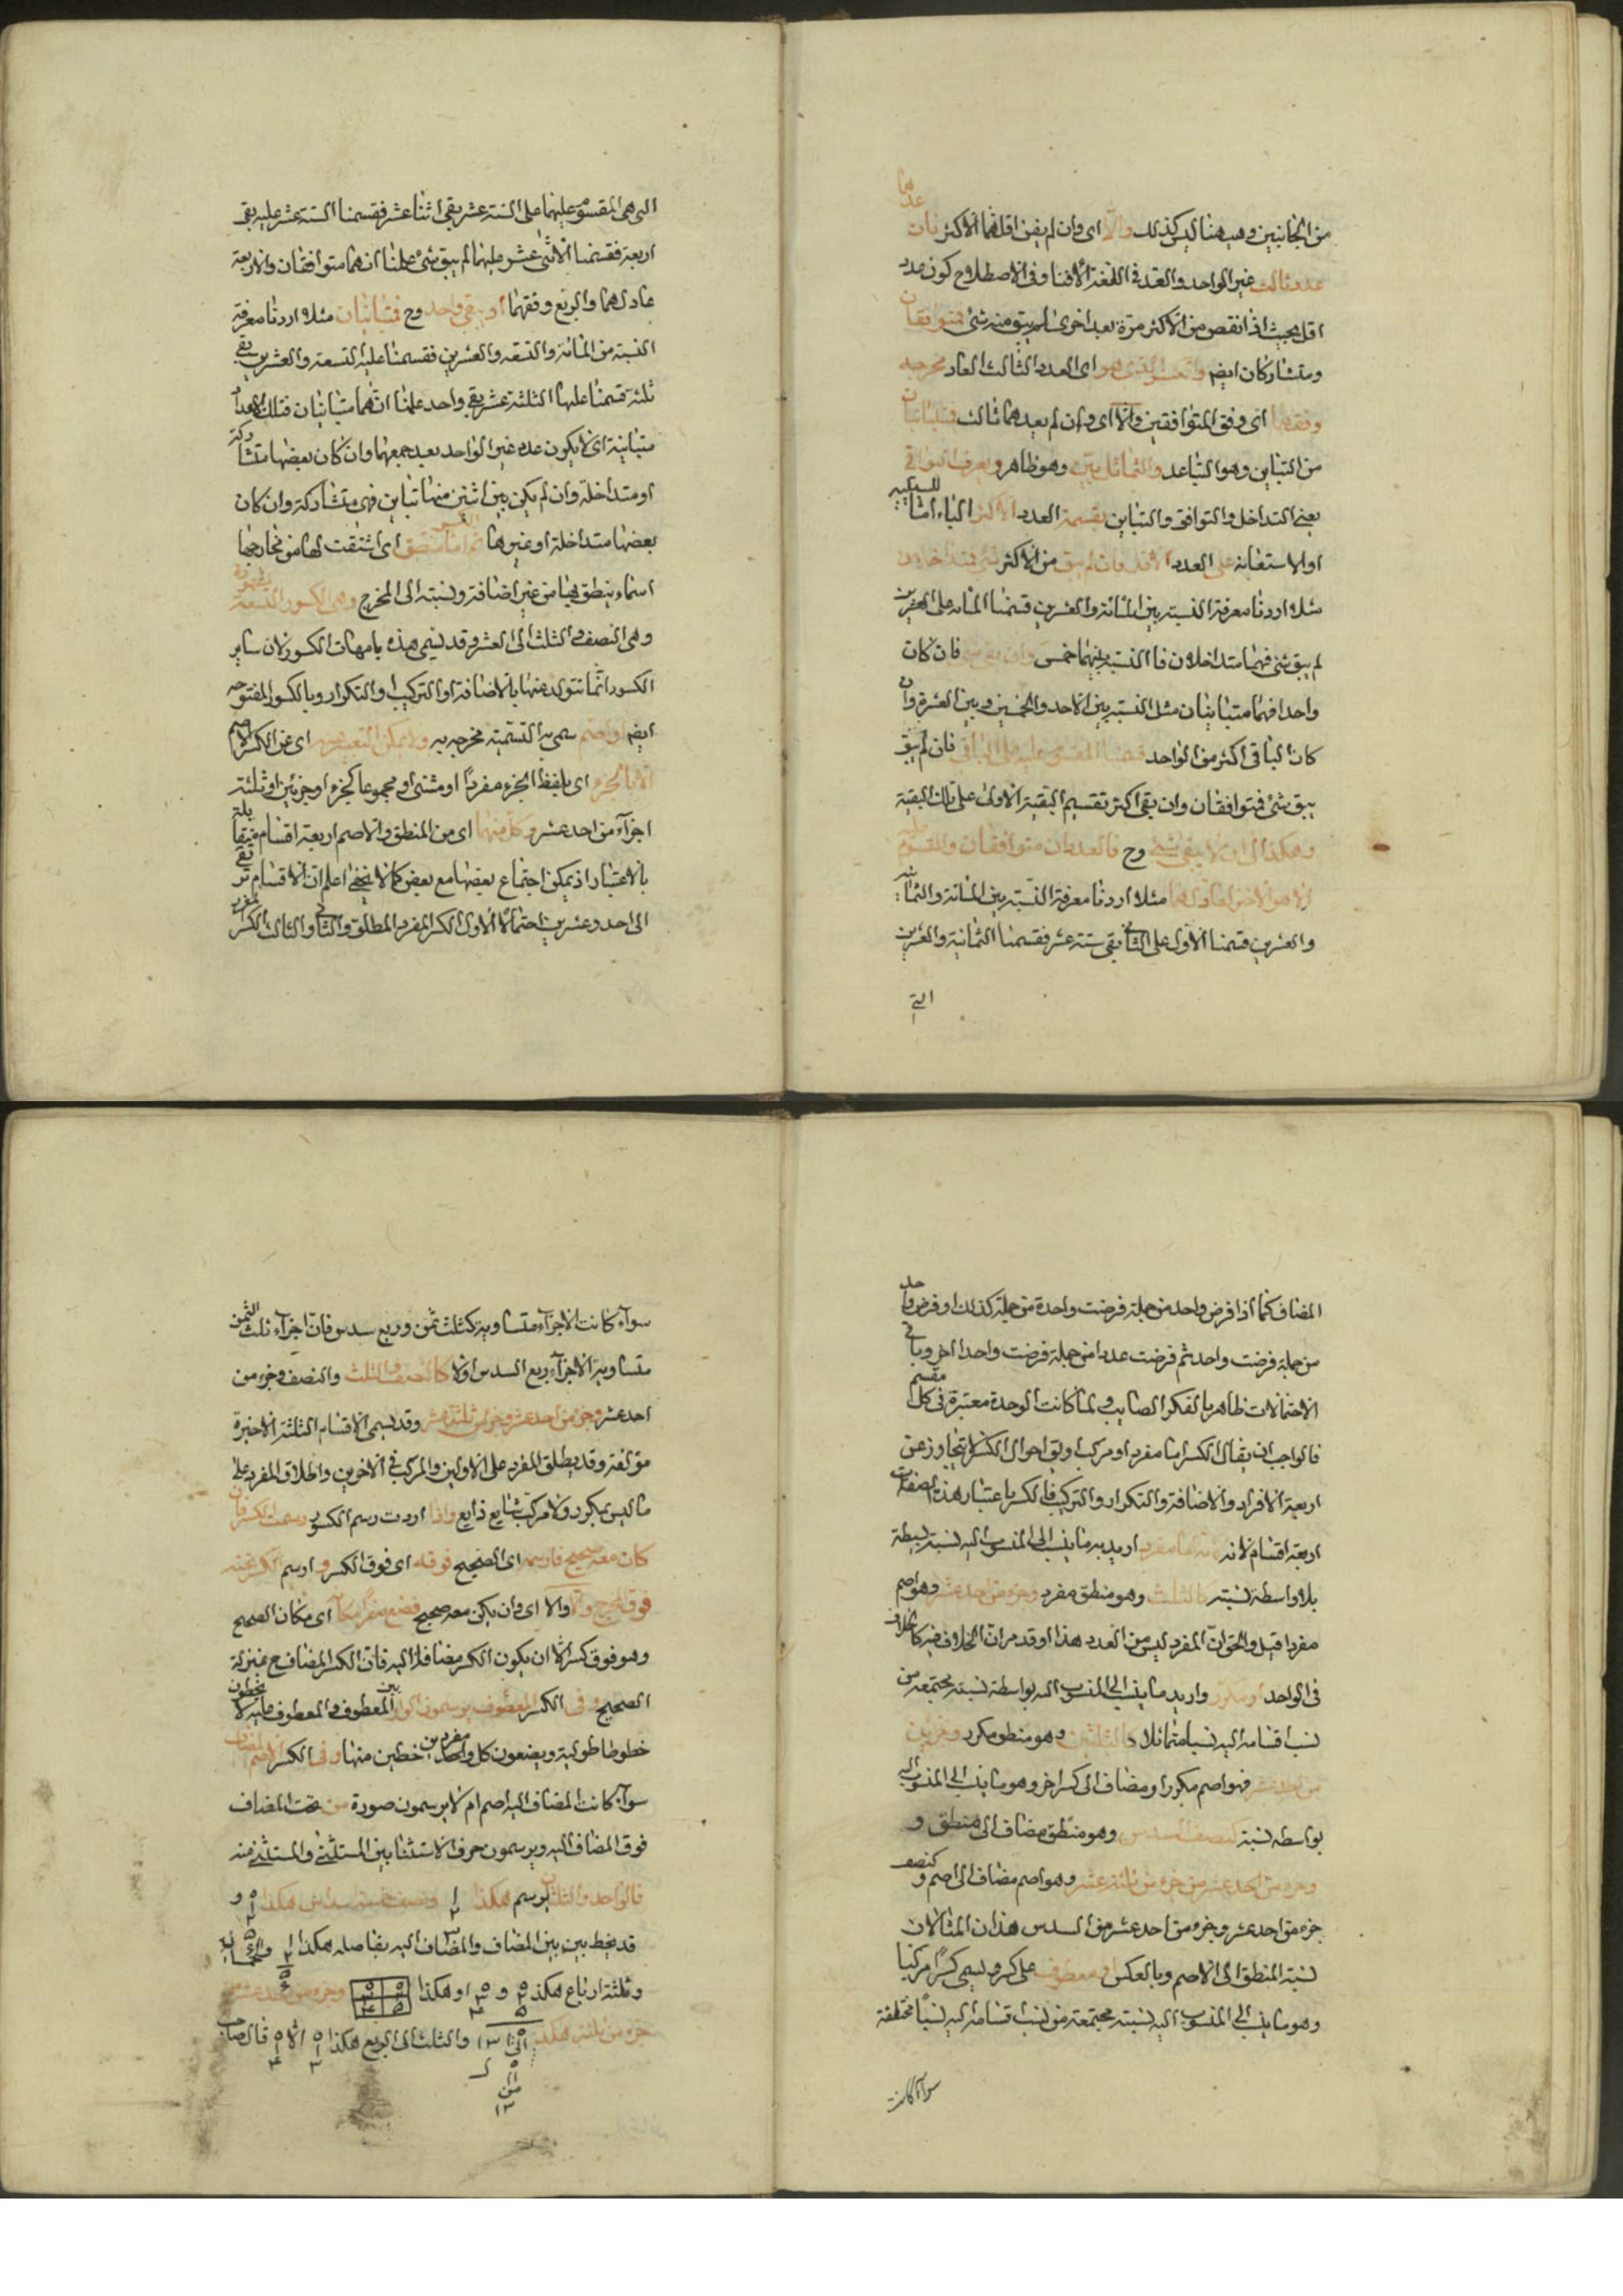 من الجانبين وهيهنا ليس كذلك والا اى وان لم يفن اقلهما الاكثر فان عدهما
عدد ثالث غير الواحد والعد فى اللغة الافنا وفى الاصطلاح كون عدد
اقل بحيث اذا نقص من الاكثر مرة بعد اخرى لم يبق منه شئ فمتوافقان
ومتشاركان ايضا والكسر الذى هو اى العدد الثالث العاد مخرجه
وفقهما اى وفق المتوافقين والا اى وان لم يعدهما ثالث فمتباينان
من التباين وهو التباعد والتماثل بين وهو ظاهر ويعرف البواقى
يعنى التداخل والتوافق والتباين بقسمة العدد الاكثر الباء اما للسببية
او الاستعانة على العدد الاقل فان لم يبق من الاكثر شئ فمتداخلان
مثلا اردنا معرفة النسبة بين المائة والعشرين قسمنا المائة على العشرين
لم يبق شئ فهما متداخلان فالنسبة بينهما خمس وان بقى شئ فان كان
واحدا فهما متباينان مثل النسبة بين الاحد والخمسين وبين العشرة وان
كان الباقى اكثر من الواحد قسمنا المقسوم عليه على الباقى فان لم يبق
يبق شئ فمتوافقان وان بقى اكثر تقسيم البقية الاولى على تلك البقية
وهكذا الى ان لا يبقى شئ وح فالعددان متوافقان والمقسوم عليه
الاخير هو العاد لهما مثلا اردنا معرفة النسبة بين المائة والثمانية
والعشرين قسمنا الاول على الثانى بقى ستة عشر فقسمنا الثمانية والعشرين
التى
التى هى المقسوم عليهما على الستة عشر بقى اثنا عشر فقسمنا الستة عشر عليه بقى
اربعة فقسمنا الاثنى عشر عليهما لم يبق شئ علمنا انهما متوافقان والاربعة
عاد لهما والربع وفقهما او يبقى واحد وح فمتباينان مثلا اردنا معرفة
النسبة من المائة والتسعة والعشرين فقسمنا عليه التسعة والعشرين بقى
ثلثة قسمنا عليها الثلثة عشر بقى واحد علمنا انهما متباينان فتلك الاعداد
متباينة اى لا يكون عدد غير الواحد يعد جميعهما وان كان بعضها متشاركة
او متداخلة وان لم يكن بين اثنين منها تباين فهى متشاركة وان كان
بعضها متداخلة او غيرها ثم الكسر اما منطق اى اشتقت لها من مخارجها
اسماء ينطق بها من غير اضافة ونسبته الى المخرج وهى الكسور التسعة المشهورة
وهى النصف والثلث الى العشر وقد يسمى هذه بامهات الكسور لان ساير
الكسور انما تتولد منها بالاضافة او التركيب او التكرار وبالكسور المفتوحه
ايضا او اصم سمى به التسمية مخرجه به ولا يمكن التعبير عنه اى عن الكسر الاصم
الا بالجزء اى بلفظ الجزء مفردا او مثنى او مجموعا كجزء او جزئين او ثلثة
اجزآء من احد عشر وكل منهما اى من المنطق والاصم اربعة اقسام متقابلة
بالاعتبار اذ يمكن اجتماع بعضها مع بعض كما لا يخفى اعلم ان الاقسام ترتقى
الى احد وعشرين احتمالا الاول الكسر المفرد المطلق والثانى والثالث الكسر المفرد
المضاف كما اذا فرض واحد من جملة فرضت واحدة من جملة كذلك او فرض واحد
من جملة فرضت واحد ثم فرضت عددا من جملة فرضت واحدا اخر وباقى
الاحتمالات ظاهر بالفكر الصايب ولما كانت الوحدة معتبرة فى كل مقسم
فالواجب ان يقال الكسر اما مفرد او مركب او لان احوال الكسر لا يتجاوز عن
اربعة الافراد والاضافة والتكرار والتركيب فالكسر باعتبار هذه الصفات
اربعة اقسام لانه اما مفرد اريد به ما ينسب الى المنسوب اليه نسبة بسيطة
بلا واسطة نسبته كالثلث وهو منطق مفرد وجزء من احد عشر وهو اصم
مفرد قيل والحق ان المفرد ليس من العدد هذا وقد مر ان الخلاف فيه كالخلاف
فى الواحد او مكرر واريد ما ينسب الى المنسوب اليه بواسطة نسبته مجتمعة من
نسب اقسامه اليه نسبا متماثلا كالثلثين وهو منطق مكرر وجزئين
من احد عشر فهو اصم مكرر او مضاف الى كسر اخر وهو ما ينسب الى المنسوب اليه
بواسطه نسبة كنصف السدس وهو منطق مضاف الى منطق و
وجزء من احد عشر من جزء من ثلثة عشر وهو اصم مضاف الى اصم وكنصف
جزء من احد عشر وجزء من احد عشر من السدس هذان المثالان
نسبة المنطق الى الاصم وبالعكس او معطوف على كسر ويسمى كسرا مركبا
وهو ما ينسب الى المنسوب اليه نسبته مجتمعة من نسب اقسامه اليه نسبا مختلفة
سوآء كانت
سوآء كانت الاجزآء متساوية كثلث ثمن وربع سدس فان اجزآء ثلث الثمن
متساوية الاجزآء ربع السدس اولا كالنصف والثلث والنصف وجزء من
احد عشر وجزء من احد عشر وجزء من ثلثة عشر وقد يسمى الاقسام الثلثة الاخيرة
مؤلفة وقد يطلق المفرد على الاولين والمركب فى الاخرين واطلاق المفرد على
ما ليس بمكرر ولا مركب شايع ذايع واذا اردت رسم الكسور رسمت الكسر فان
كان معه صحيح فارسمه اى الصحيح فوقه اى فوق الكسر وارسم الكسر تحته
فوق المخرج والا والا اى وان لم يكن معه صحيح فضع صفرا مكانه اى مكان الصحيح
وهو فوق كسر الا ان يكون الكسر مضافا اليه فان الكسر المضاف ح بمنزلة
الصحيح وفى الكسر المعطوف يرسمون الواو بين المعطوف والمعطوف عليه لا يخطون
خطوطا طولية ويضعون كل واحد مفردين خطين منها وفى الكسر الاصم المضاف
سوآء كانت المضاف اليه اصم ام لا يرسمون صورة من تحت المضاف
فوق المضاف اليه ويرسمون حرف الاستثنا بين المستثنى والمستثنى منه
فالواحد والثلثان يرسم هكذا ١ ٢ ٣ ونصف خمسة اسداس هكذا و
قد يخط بين بين المضاف والمضاف اليه بفاصلة هكذا
وثلثة ارباع هكذا و او هكذا وجزء من احد عشر من
جزء من ثلثة هكذا والثلث الى الربع هكذا الا قال صاحب
من
١٣